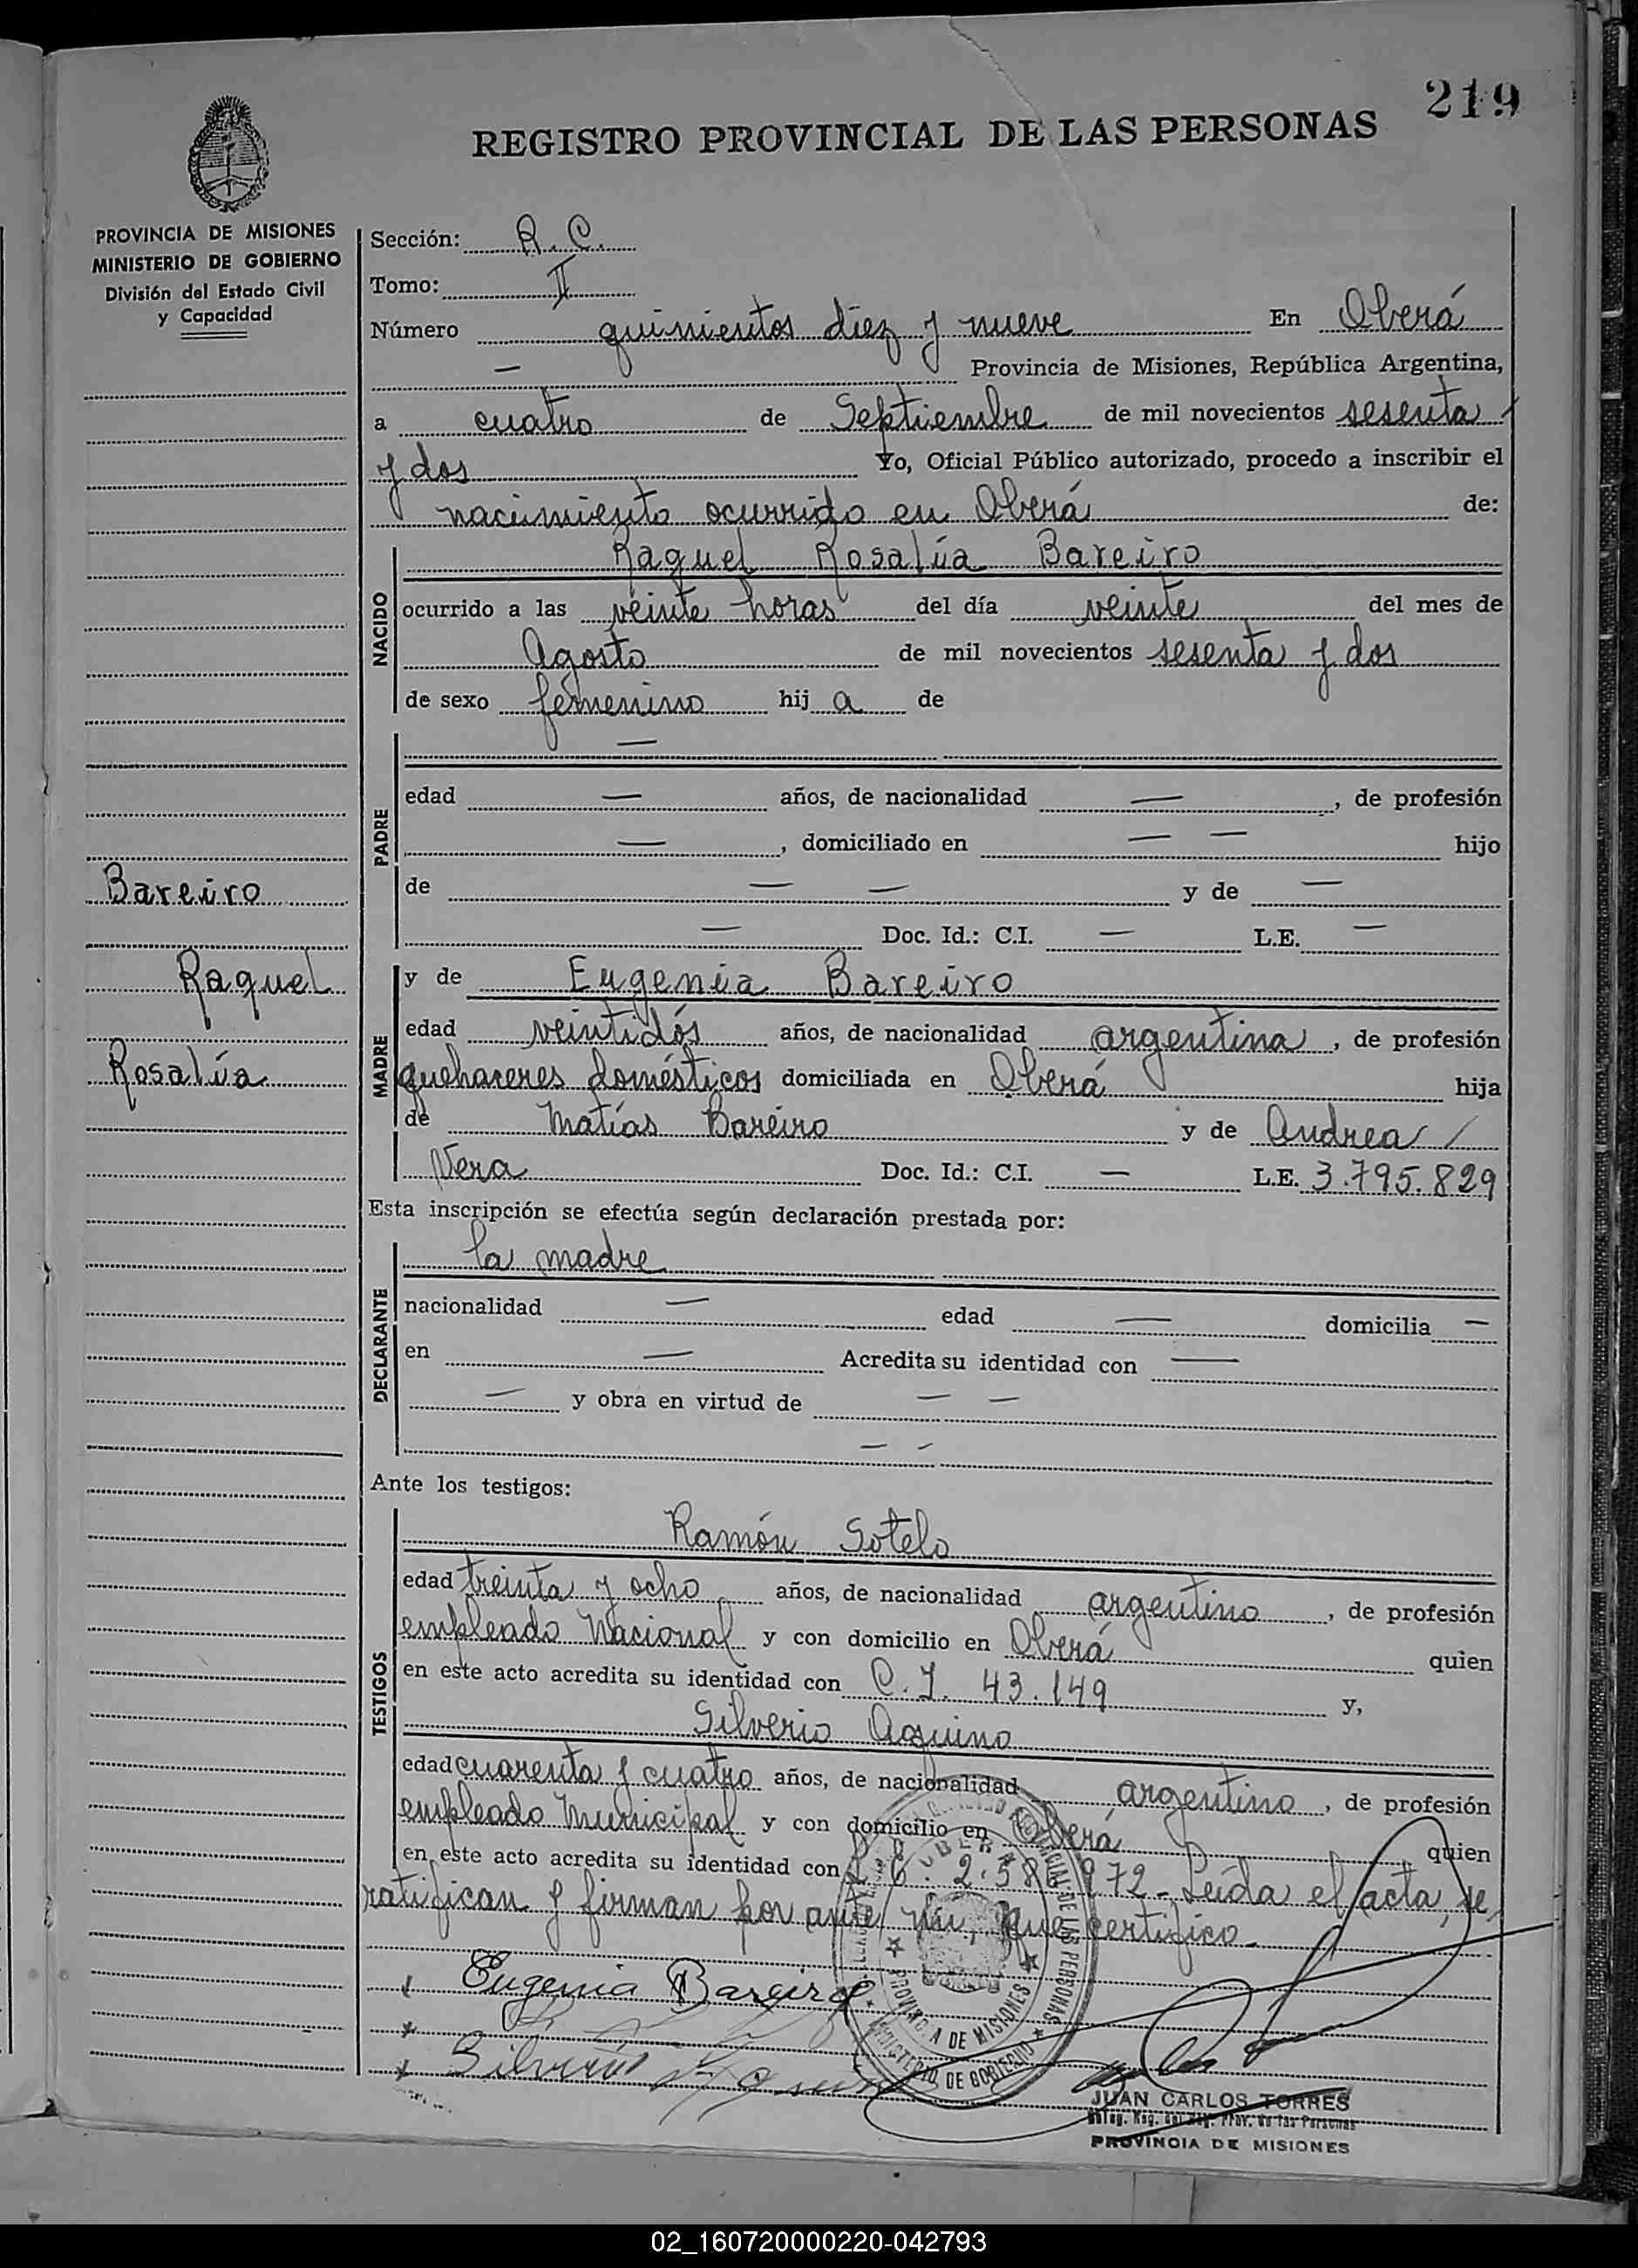 219
REGISTRO PROVINCIAL DE LAS PERSONAS
PROVINCIA DE MISIONES
MINISTERIO DE GOBIERNO
División del Estado Civil
y Capacidad
Sección: R. C.
Tomo: II
Número quinientos diez y nueve En Oberá
— Provincia de Misiones, República Argentina,
a cuatro de Septiembre de mil novecientos sesenta
y dos Yo, Oficial Público autorizado, procedo a inscribir el
nacimiento ocurrido en Oberá de:
NACIDO
Raquel Rosalía Bareiro
ocurrido a las veinte horas del día veinte del mes de
Agosto de mil novecientos sesenta y dos
de sexo femenino hij a de
PADRE
—
edad — años, de nacionalidad —, de profesión
—, domiciliado en — — hijo
de — — y de —
— Doc. Id.: C.I. — L.E. —
Bareiro
Raquel
Rosalía
MADRE
y de Eugenia Bareiro
edad veintidós años, de nacionalidad argentina, de profesión
quehaceres domésticos domiciliada en Oberá hija
de Matías Bareiro y de Andrea /
Vera Doc. Id.: C.I. — L.E. 3.795.829
Esta inscripción se efectúa según declaración prestada por:
DECLARANTE
la madre
nacionalidad — edad — domicilia —
en — Acredita su identidad con —
— y obra en virtud de — —
— —
Ante los testigos:
TESTIGOS
Ramón Sotelo
edad treinta y ocho años, de nacionalidad argentino, de profesión
empleado Nacional y con domicilio en Oberá quien
en este acto acredita su identidad con C. I. 43.149 y,
Silverio Aquino
edad cuarenta y cuatro años, de nacionalidad argentino, de profesión
empleado Municipal y con domicilio en Oberá quien
en este acto acredita su identidad con 972- Leída el acta, se
ratifican y firman por ante mí, que certifico.
Eugenia Bareiro
Silverio Aquino
OBERA
PROVINCIA DE MISIONES
MINISTERIO DE GOBIERNO
PROVINCIAL DE LAS PERSONAS
JUAN CARLOS TORRES
PROVINCIA DE MISIONES
02_160720000220-042793